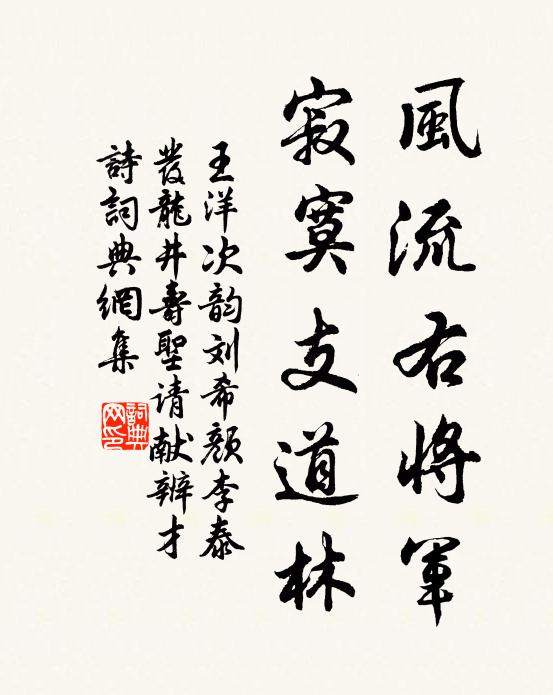 風流右將軍
寂寞支道林
王洋次韵刘希顔李泰
發龍井壽聖请献辨才
詩詞典網集
詞典
网印